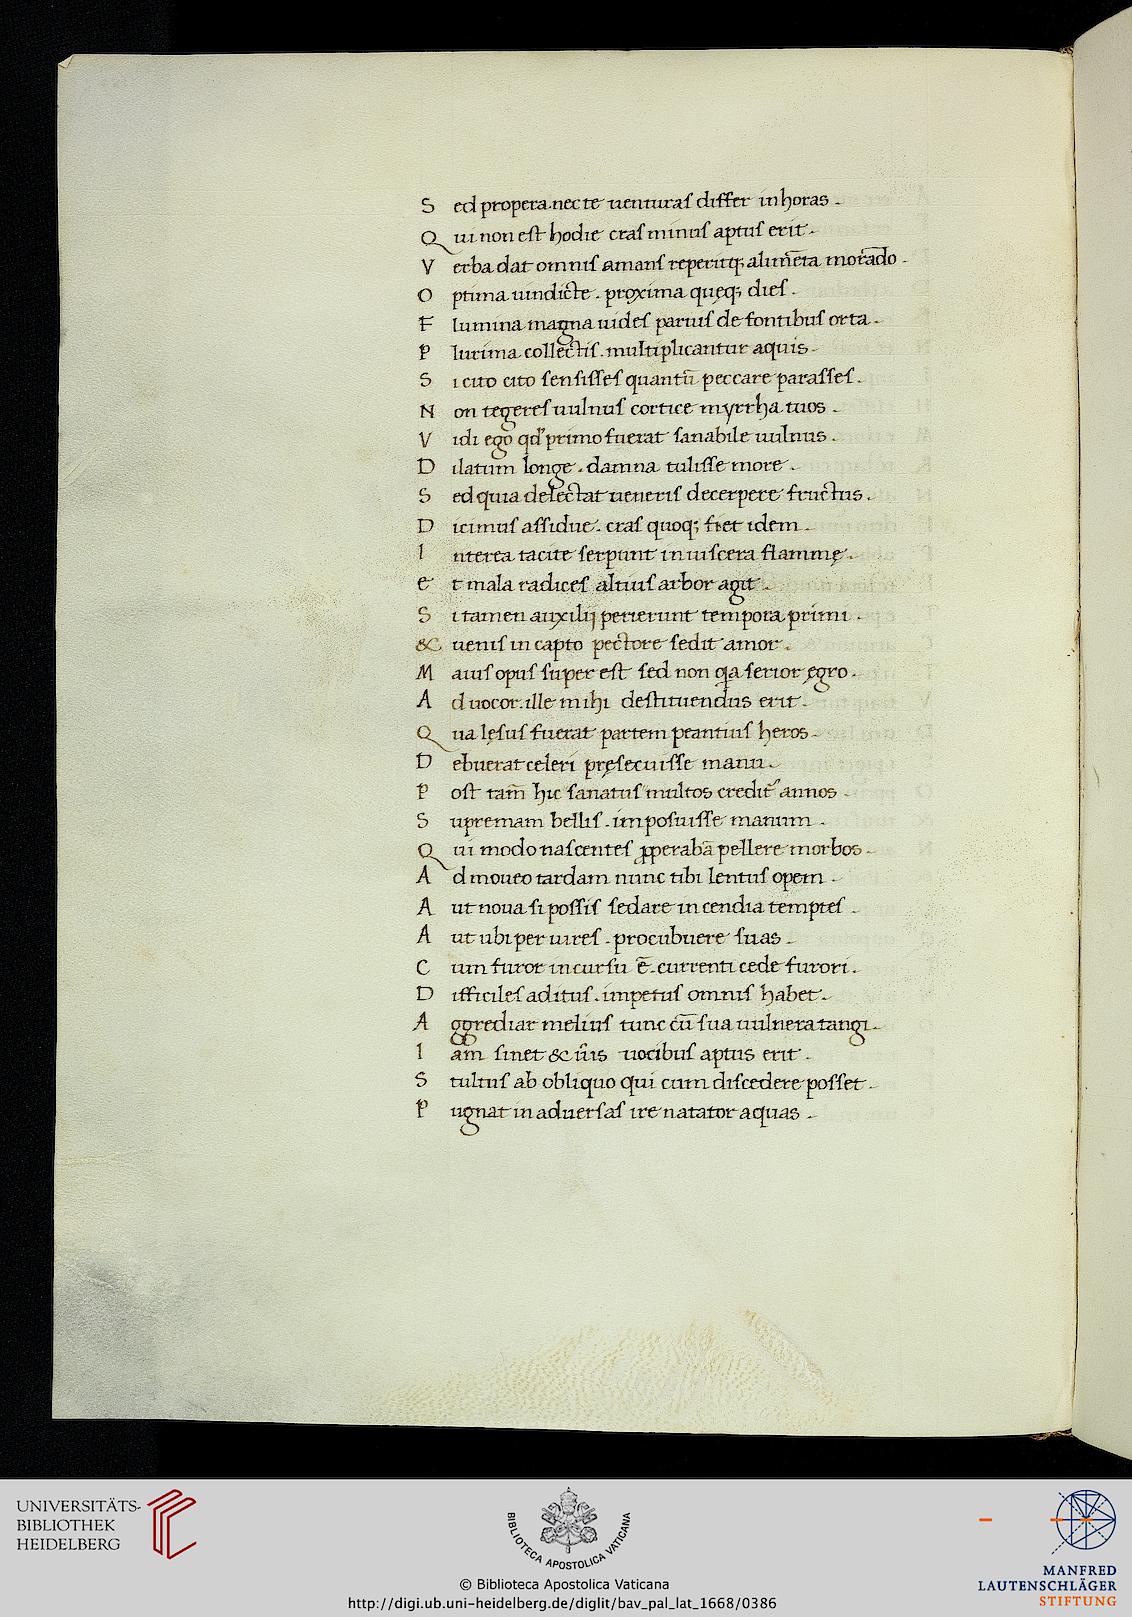 S ed propera nec te uenturaſ differ in horas .
Q ui non eſt hodie craſ minuſ aptuſ erit .
V erba dat omniſ amanſ reperitq; alim̄ēta morādo .
O ptima uindicte . proxima quęq; dieſ .
F lumina magna uideſ paruiſ de fontibuſ orta .
P lurima collectiſ . multiplicantur aquis .
S i cito cito ſenſiſſeſ quantū peccare paraſſeſ .
N on tegereſ uulnuſ cortice myrrha tuos .
V idi ego qd' primo fuerat ſanabile uulnus .
D ilatum longe . damna tuliſſe more .
S ed quia delectat ueneriſ decerpere fructus .
D icimuſ aſſidue . craſ quoq; fiet idem .
I nterea tacite ſerpunt in uiſcera flammę .
e t mala radiceſ altiuſ arbor agit .
S i tamen auxilij perierunt tempora primi .
& uenuſ in capto pectore ſedit amor .
M aiuſ opuſ ſuper eſt ſed non qa ſerior ęgro .
A d uocor . ille mihi deſtituendus erit .
Q ua lęſuſ fuerat partem peantiuſ heros .
D ebuerat celeri pręſecuiſſe manu .
P oſt tam̄ hic ſanatuſ multos credit᷑ annos .
S upremam belliſ . impoſuiſſe manum .
Q ui modo naſcenteſ ꝓperabā pellere morbos .
A d moueo tardam nunc tibi lentuſ opem .
A ut noua ſi poſſiſ ſedare incendia tempteſ .
A ut ubi per uireſ . procubuere ſuas .
C um furor in curſu ē . currenti cede furori .
D ifficileſ adituſ . impetuſ omniſ habet .
A ggrediar meliuſ tunc cū ſua uulnera tangi .
I am ſinet & ūis uocibuſ aptus erit .
S tultuſ ab obliquo qui cum diſcedere poſſet .
P ugnat in aduerſaſ ire natator aquas .
UNIVERSITÄTS-
BIBLIOTHEK
HEIDELBERG
BIBLIOTECA APOSTOLICA VATICANA
MANFRED
LAUTENSCHLÄGER
STIFTUNG
© Biblioteca Apostolica Vaticana
http://digi.ub.uni-heidelberg.de/diglit/bav_pal_lat_1668/0386